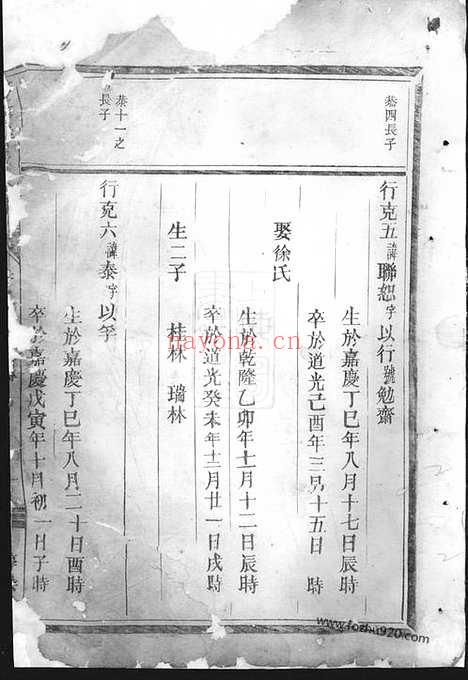 恭四長子
行克五諱聯恕字以行號勉齋
生於嘉慶丁巳年八月十七日辰時
卒於道光己酉年三月十五日　時
娶徐氏
生於乾隆乙卯年十一月十二日辰時
卒於道光癸未年十二月廿一日戌時
生二子　桂林　瑞林
恭十一之
長子
行克六諱泰字以孚
生於嘉慶丁巳年八月二十日酉時
卒於嘉慶戊寅年十月初一日子時
nayona.cn
www.fozhu920.com